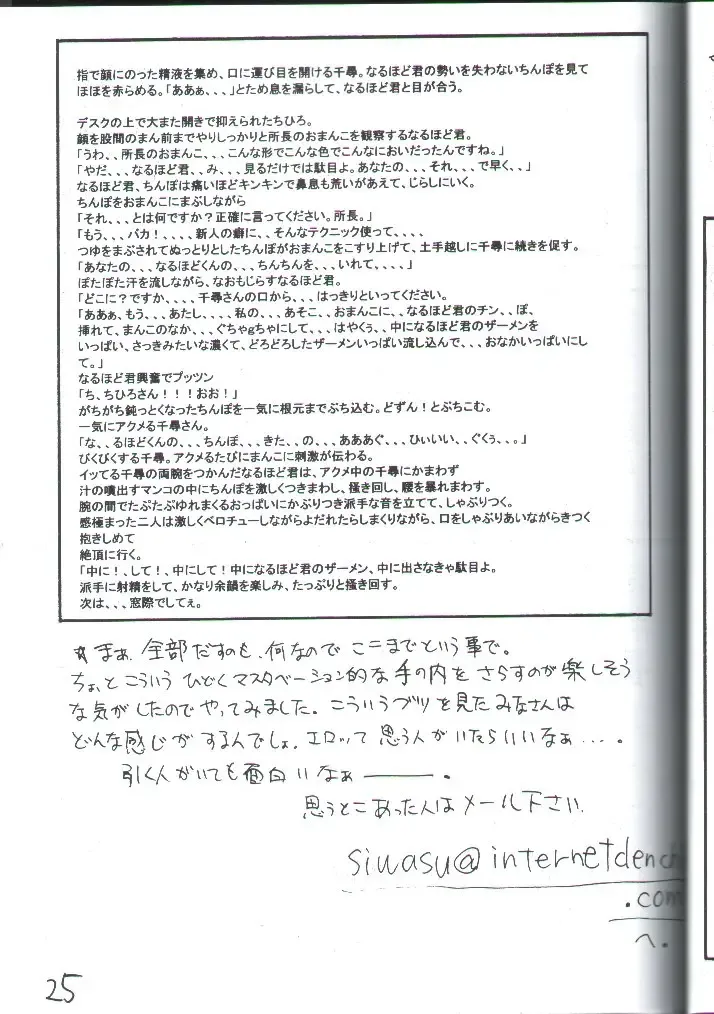 指で顔にのった精液を集め、口に運び目を開ける千尋。なるほど君の勢いを失わないちんぽを見て
ほほを赤らめる。「ああぁ、、、」とため息を漏らして、なるほど君と目が合う。
デスクの上で大また開きで抑えられたちひろ。
顔を股間のまん前までやりしっかりと所長のおまんこを観察するなるほど君。
「うわ、、所長のおまんこ、、、こんな形でこんな色でこんなにおいだったんですね。」
「やだ、、、なるほど君、、み、、、見るだけでは駄目よ。あなたの、、、それ、、、で早く、、」
なるほど君、ちんぽは痛いほどキンキンで鼻息も荒いがあえて、じらしにいく。
ちんぽをおまんこにまぶしながら
「それ、、、とは何ですか？正確に言ってください。所長。」
「もう、、、バカ！、、、、新人の癖に、、そんなテクニック使って、、、、
つゆをまぶされてぬっとりとしたちんぽがおまんこをこすり上げて、土手越しに千尋に続きを促す。
「あなたの、、、なるほどくんの、、、ちんちんを、、、いれて、、、、」
ぽたぽた汗を流しながら、なおもじらすなるほど君。
「どこに？ですか、、、、千尋さんの口から、、、はっきりといってください。
「ああぁ、もう、、、あたし、、、、私の、、、あそこ、、おまんこに、、なるほど君のチン、、ぽ、
挿れて、まんこのなか、、、ぐちゃgちゃにして、、、はやくぅ、、中になるほど君のザーメンを
いっぱい、さっきみたいな濃くて、どろどろしたザーメンいっぱい流し込んで、、、おなかいっぱいにし
て。」
なるほど君興奮でプッツン
「ち、ちひろさん！！！おお！」
がちがち鈍っとくなったちんぽを一気に根元までぶち込む。どずん！とぶちこむ。
一気にアクメる千尋さん。
「な、、るほどくんの、、、ちんぽ、、、きた、、の、、、あああぐ、、、ひぃいいい、、ぐくぅ、、。」
びくびくする千尋。アクメるたびにまんこに刺激が伝わる。
イッてる千尋の両腕をつかんだなるほど君は、アクメ中の千尋にかまわず
汁の噴出すマンコの中にちんぽを激しくつきまわし、掻き回し、腰を暴れまわす。
腕の間でたぷたぷゆれまくるおっぱいにかぶりつき派手な音を立てて、しゃぶりつく。
感極まった二人は激しくベロチューしながらよだれたらしまくりながら、口をしゃぶりあいながらきつく
抱きしめて
絶頂に行く。
「中に！、して！、中にして！中になるほど君のザーメン、中に出さなきゃ駄目よ。
派手に射精をして、かなり余韻を楽しみ、たっぷりと掻き回す。
次は、、、窓際でしてぇ。
まぁ、全部だすのも、何なので ここまでという事で。
ちょっとこういう ひどくマスタベーション的な手の内を さらすのが楽しそう
な気がしたのでやってみました。こういうブツを見たみなさんは
どんな感じがするんでしょ。エロッて思う人がいたらいいなぁ…。
引く人がいても面白いなぁ――。
思うとこあった人はメール下さい。
siwasu@internetden
.com
へ。
25